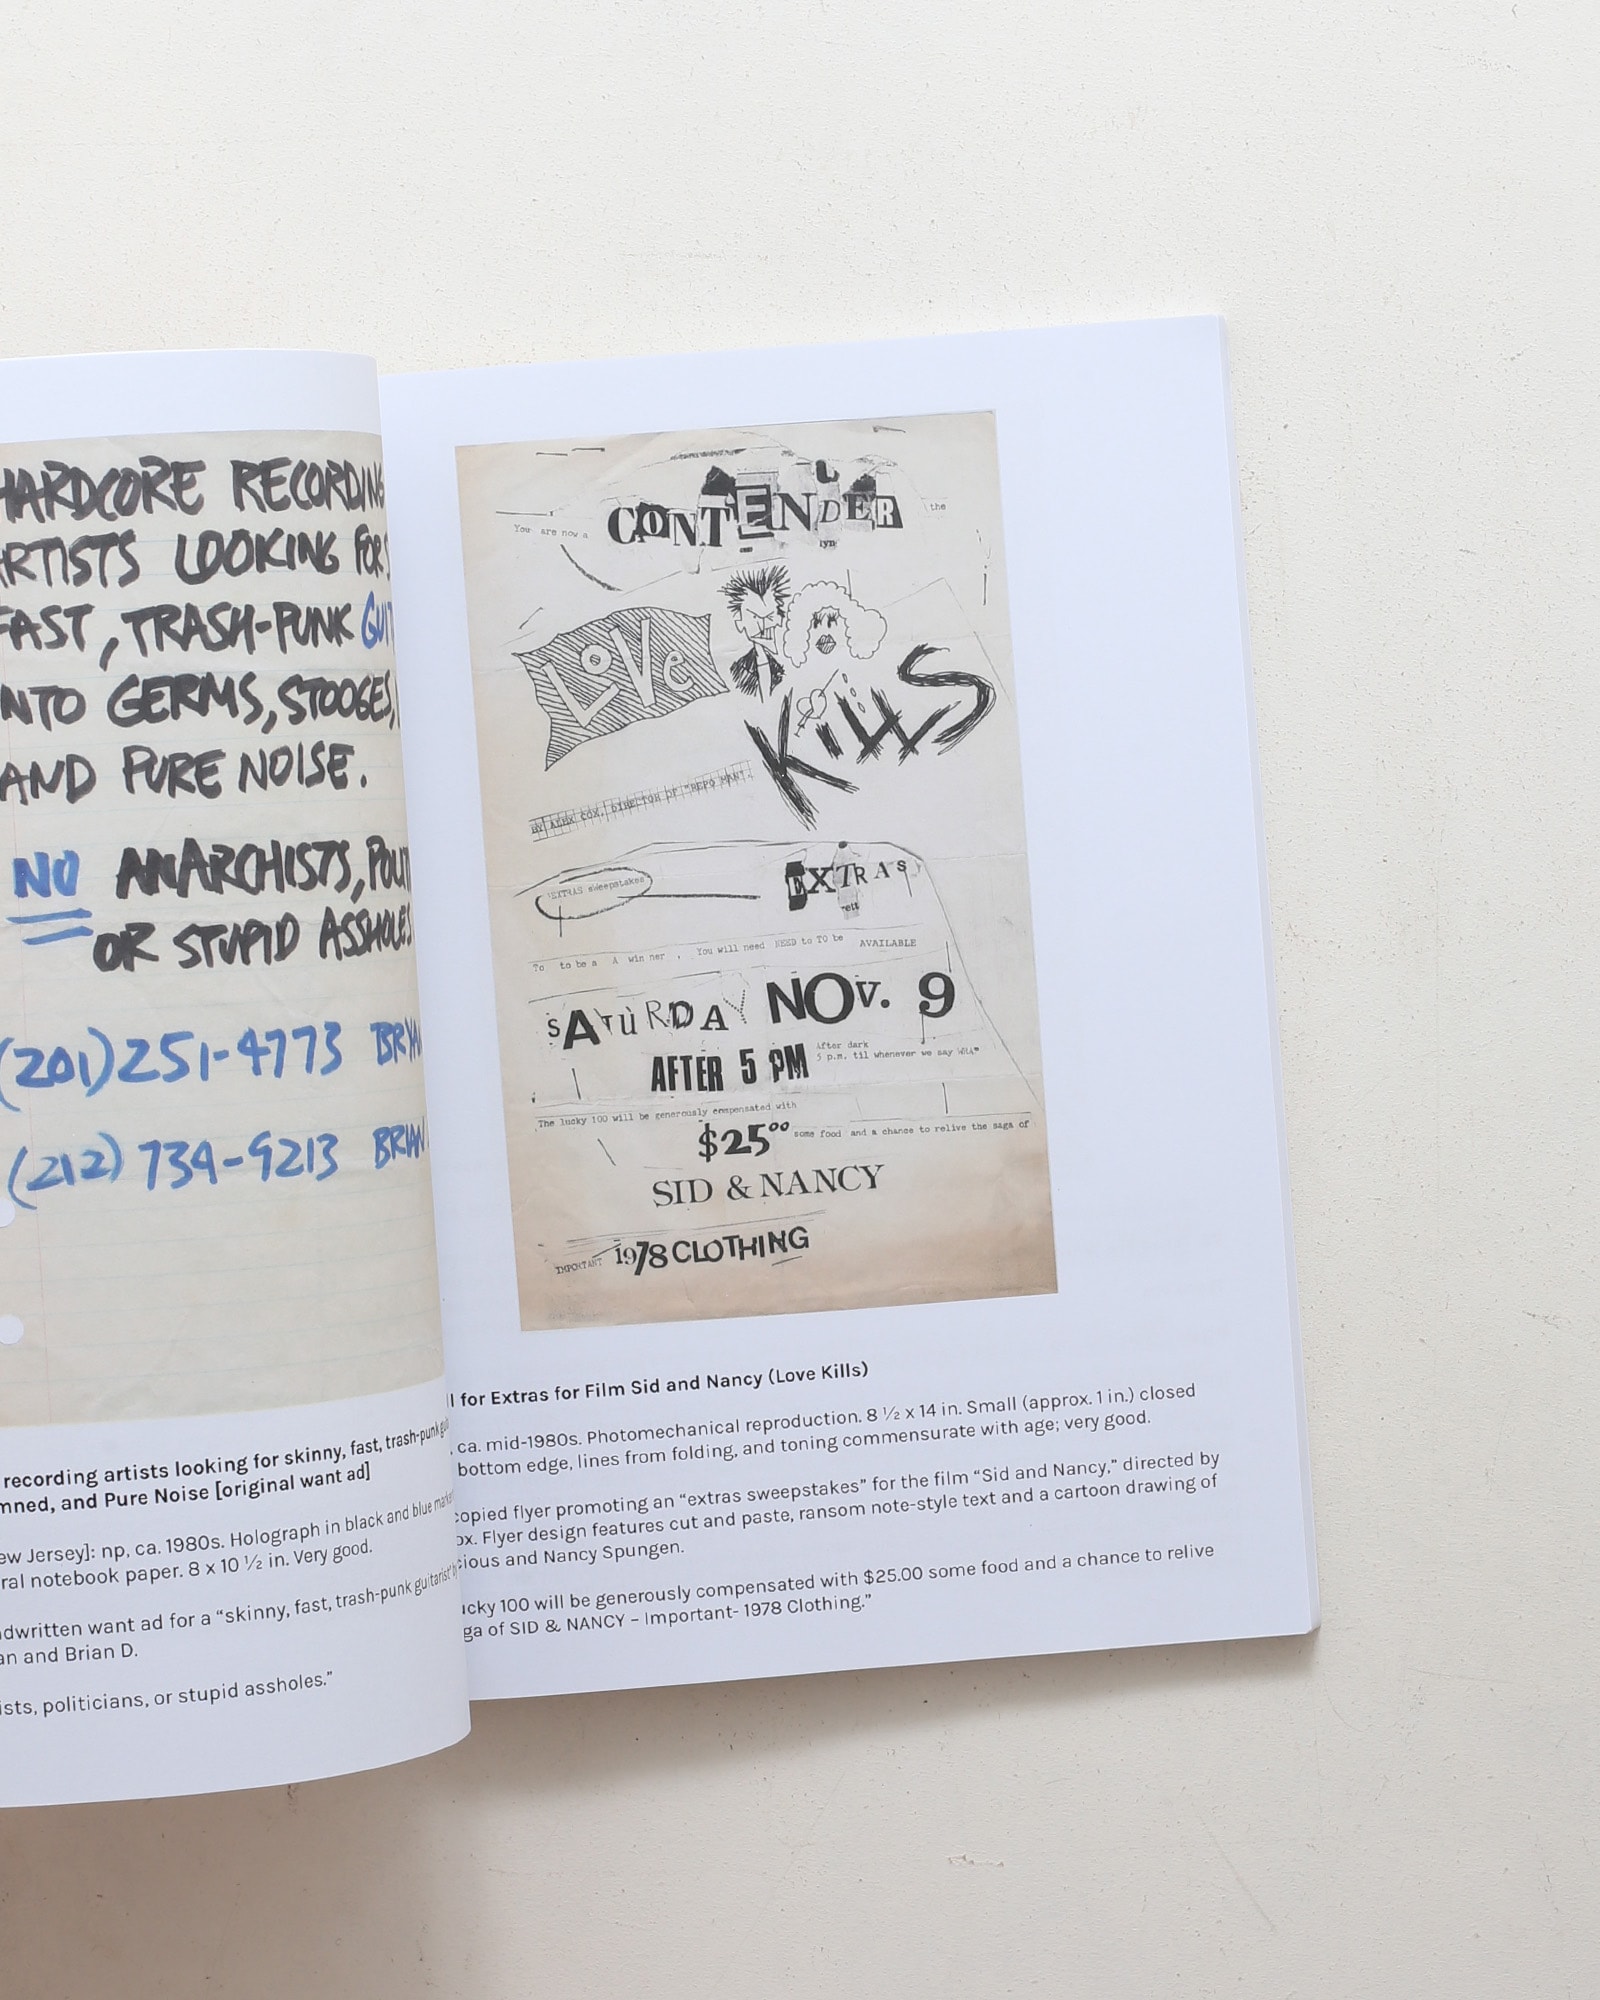 HARDCORE RECORDING
ARTISTS LOOKING FOR
FAST, TRASH-PUNK
INTO GERMS, STOOGES,
AND PURE NOISE.
NO ANARCHISTS,
OR STUPID ASSHOLES
(201) 251-4773
(212) 734-9213 BRIAN
recording artists looking for skinny, fast, trash-punk
mned, and Pure Noise [original want ad]
ew Jersey]: np, ca. 1980s. Holograph in black and blue
ral notebook paper. 8 x 10 ½ in. Very good.
dwritten want ad for a “skinny, fast, trash-punk guitarist”
an and Brian D.
ists, politicians, or stupid assholes.”
You are now a CONTENDER the
LOVE
KILLS
BY ALEX COX, DIRECTOR OF "REPO MAN".
EXTRAS sweepstakes
EXTRAS
To to be a A win ner , You will need NEED to TO be AVAILABLE
SATURDAY NOV. 9
AFTER 5 PM
After dark
5 p.m. til whenever we say
The lucky 100 will be generously compensated with
$25⁰⁰ some food and a chance to relive the saga of
SID & NANCY
IMPORTANT 1978 CLOTHING
ll for Extras for Film Sid and Nancy (Love Kills)
, ca. mid-1980s. Photomechanical reproduction. 8 ½ x 14 in. Small (approx. 1 in.) closed
bottom edge, lines from folding, and toning commensurate with age; very good.
copied flyer promoting an “extras sweepstakes” for the film “Sid and Nancy,” directed by
ox. Flyer design features cut and paste, ransom note-style text and a cartoon drawing of
cious and Nancy Spungen.
ucky 100 will be generously compensated with $25.00 some food and a chance to relive
ga of SID & NANCY – Important- 1978 Clothing.”